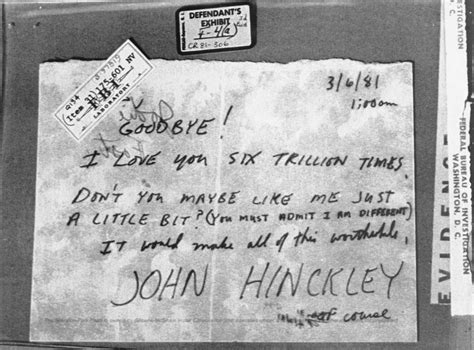 DEFENDANT'S
EXHIBIT
7-4(a)
CR 81-306
FBI
LABORATORY
3/6/81
1:00am
GOODBYE!
I LOVE YOU SIX TRILLION TIMES.
DON'T YOU MAYBE LIKE ME JUST
A LITTLE BIT? (YOU MUST ADMIT I AM DIFFERENT)
IT would make all of this worthwhile,
JOHN HINCKLEY
of course
EVIDENCE
FEDERAL BUREAU OF INVESTIGATION
WASHINGTON, D. C.